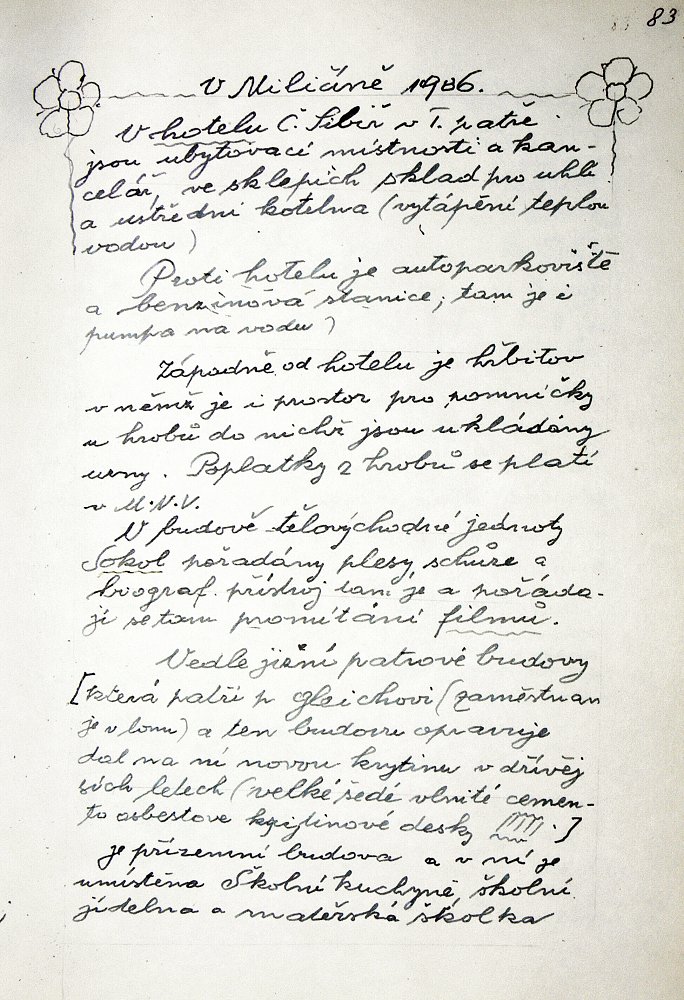 83
V Miličíně 1986.
V hotelu Č. Sibiř v I. patře
jsou ubytovací místnosti a kan-
celář, ve sklepích sklad pro uhlí
a ustřední kotelna (vytápění teplou
vodou)
Proti hotelu je autoparkoviště
a benzinová stanice, tam je i
pumpa na vodu)
Západně od hotelu je hřbitov
v němž je i prostor pro pomníčky
u hrobů do nichž jsou ukládány
urny. Poplatky z hrobů se platí
v M.N.V.
V budově tělovýchodné jednoty
Sokol pořadány plesy schůze a
biograf. přístroj tam je a pořáda-
jí se tam promítání filmů.
Vedle jižní patrové budovy
[která patří p. Gleichovi (zaměstnan
je v lomu) a ten budovu opravuje
dal na ní novou krytinu v dřívěj
ších letech (velké šedé vlnité cemen-
to asbestove desky .]
je přízemní budova a v ní je
umístěna Školní kuchyně, školní
jídelna a mateřská školka